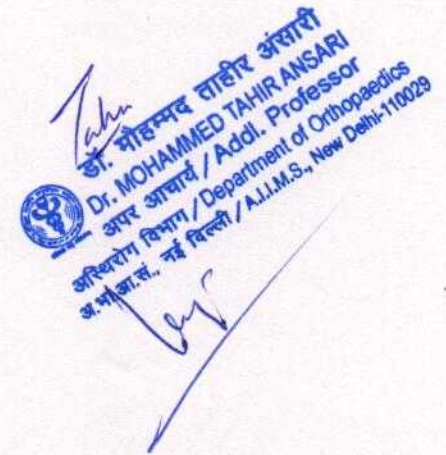 डॉ. मौहम्मद ताहीर अंसारी
Dr. MOHAMMED TAHIR ANSARI
अपर आचार्य / Addl. Professor
अस्थिरोग विभाग / Department of Orthopaedics
अ.भा.आ.सं., नई दिल्ली / A.I.I.M.S., New Delhi-110029